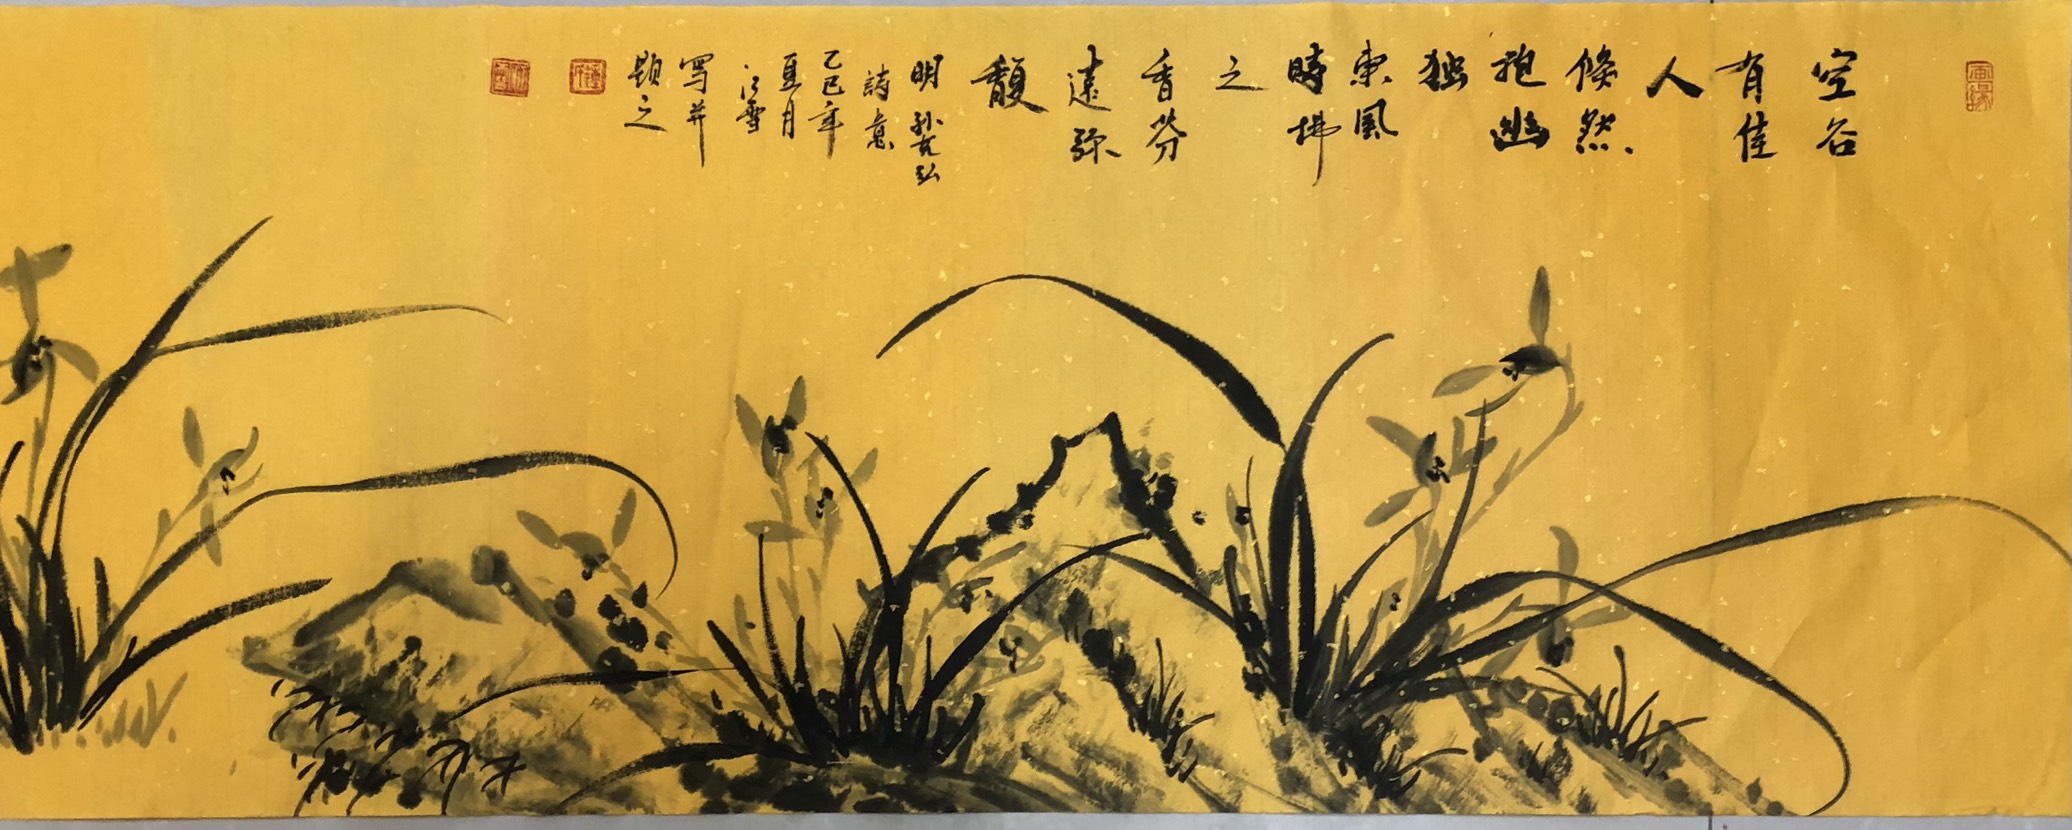 空谷
有佳
人
倏然
抱幽
独
東風
時拂
之
香芬
遠弥
馥
明孙克弘
詩意
乙巳年
夏月
江雪
写并
题之